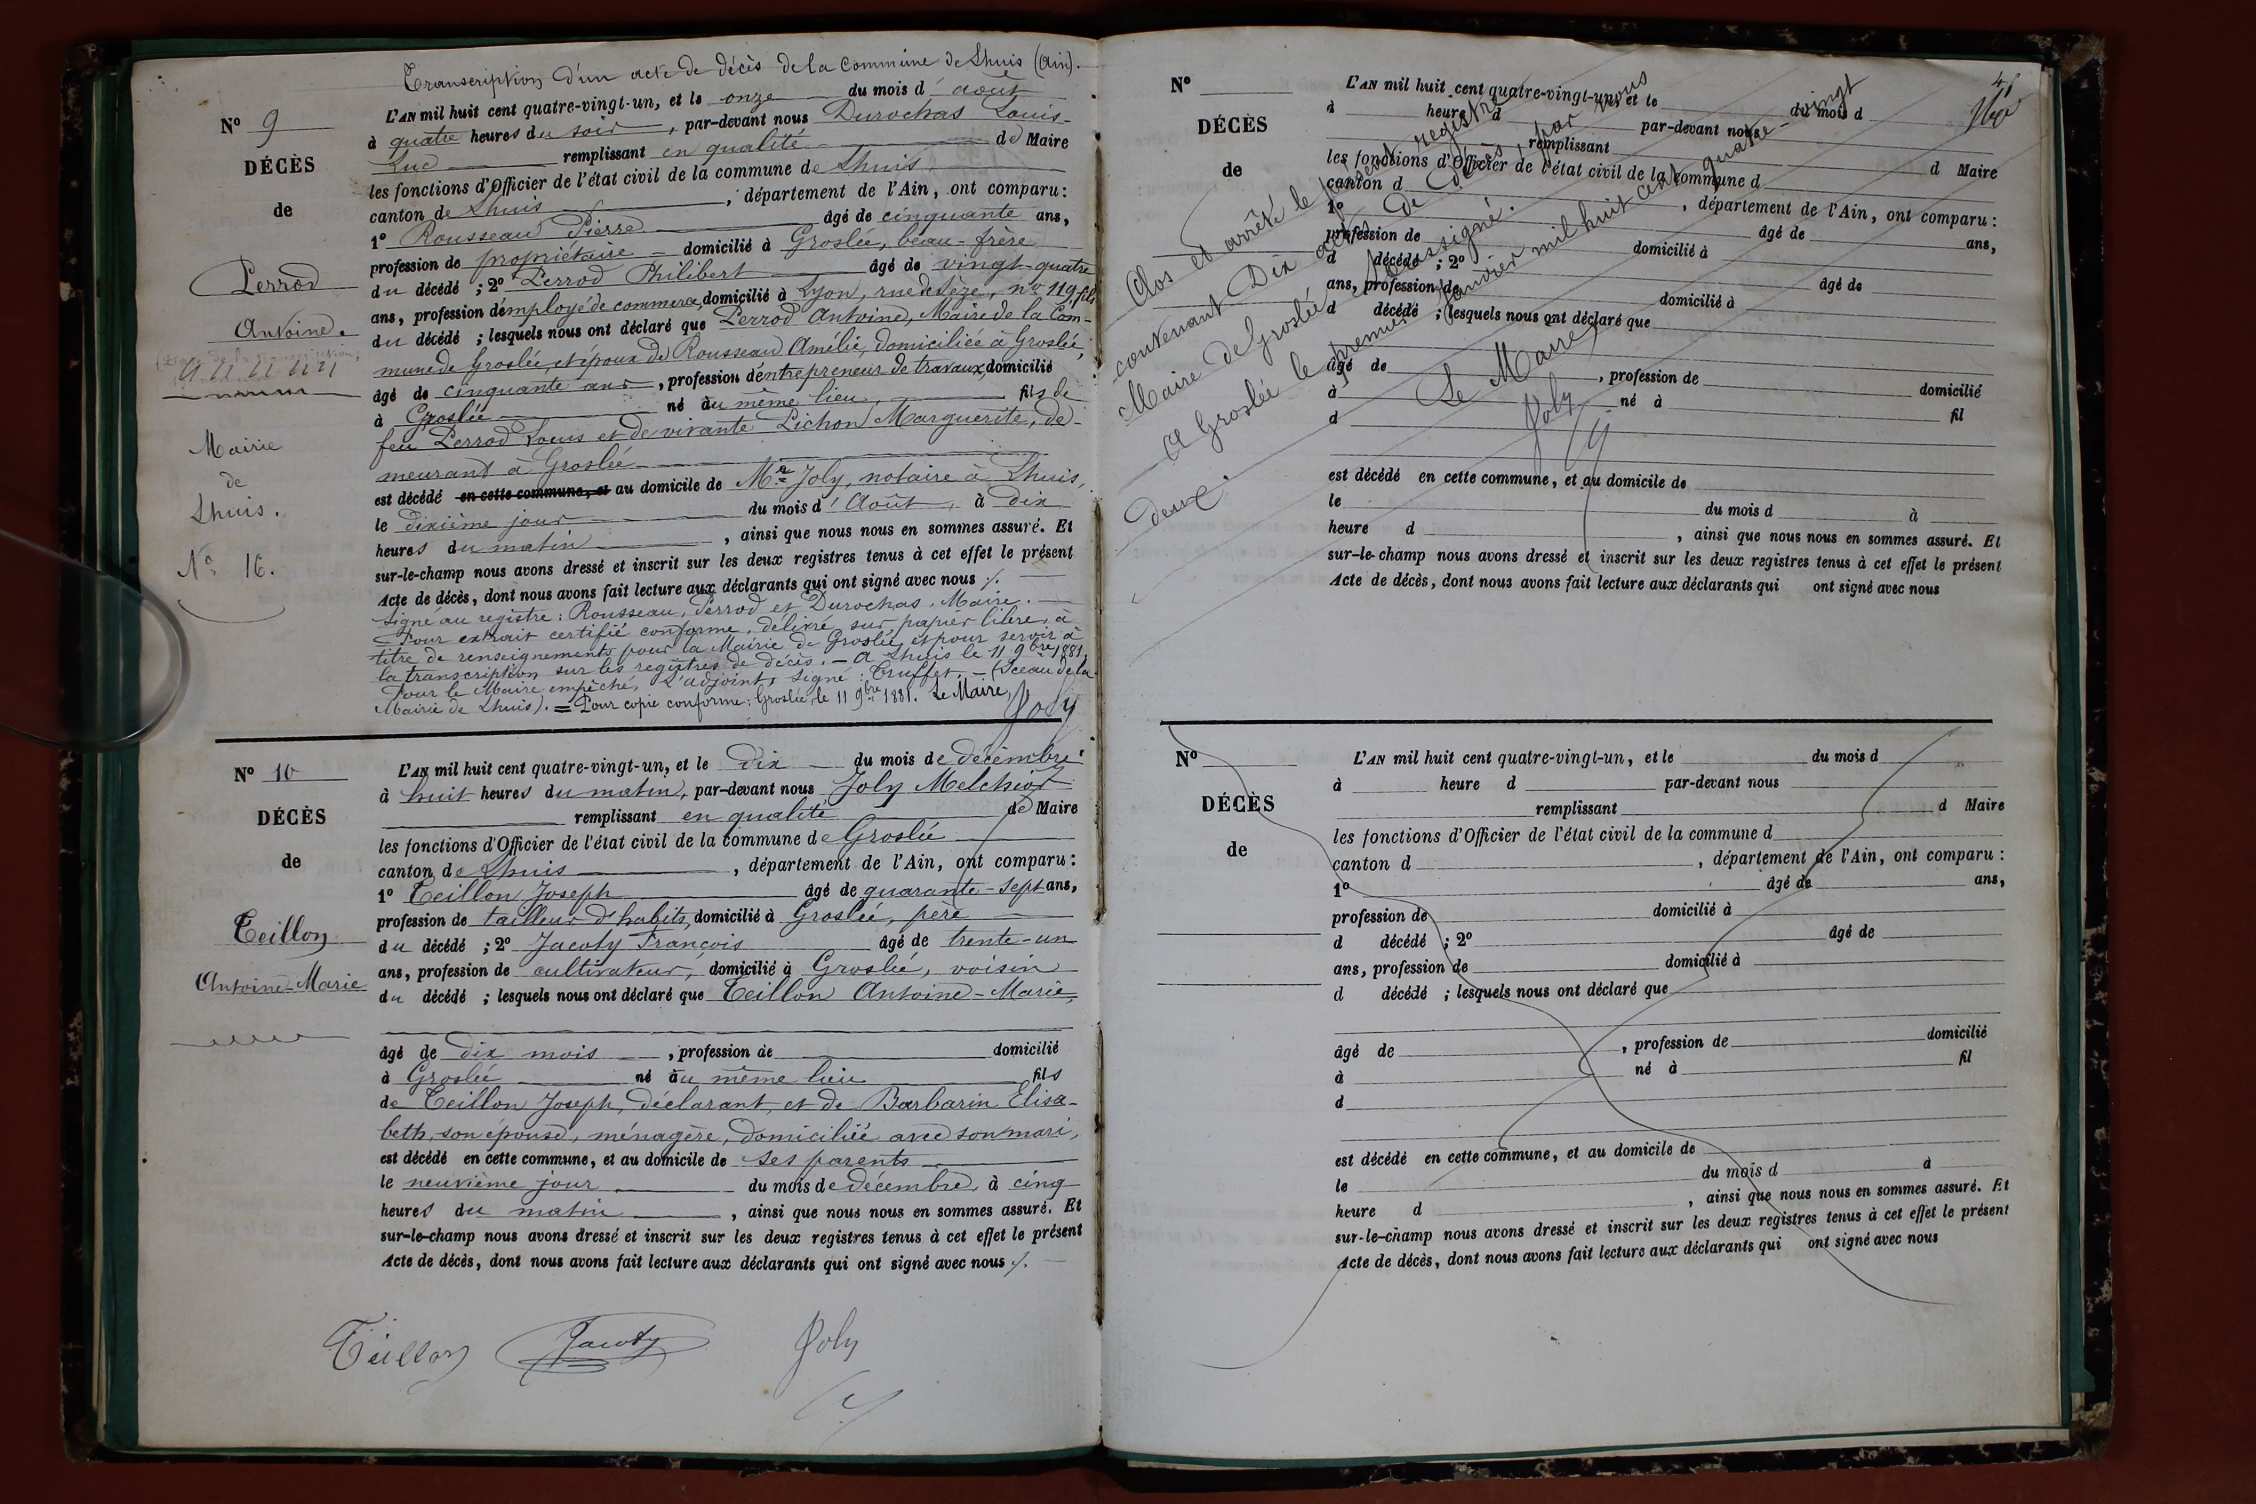 Transcription d'un acte de décès de la commune de Lhuis (Ain).
N° 9
DÉCÈS
de
Perrod
Antoine.
Mairie
de
Lhuis.
N° 16.
L'AN mil huit cent quatre-vingt-un, et le onze du mois d'août
à quatre heures du soir, par-devant nous Durochas Louis-
Luc remplissant en qualité de Maire
les fonctions d'Officier de l'état civil de la commune de Lhuis,
canton de Lhuis, département de l'Ain, ont comparu :
1° Rousseau Pierre âgé de cinquante ans,
profession de propriétaire domicilié à Groslée, beau-frère
du décédé ; 2° Perrod Philibert âgé de vingt-quatre
ans, profession d'employé de commerce, domicilié à Lyon, rue de Sèze, n° 119, fils
du décédé ; lesquels nous ont déclaré que Perrod Antoine, Maire de la Com-
mune de Groslée, et époux de Rousseau Amélie, domiciliée à Groslée,
âgé de cinquante ans, profession d'entrepreneur de travaux, domicilié
à Groslée né au même lieu, fils de
feu Perrod Louis et de vivante Pichon Marguerite, de-
meurant à Groslée
est décédé en cette commune, et au domicile de Me Joly, notaire à Lhuis,
le dixième jour du mois d'Août, à dix
heures du matin, ainsi que nous nous en sommes assuré. Et
sur-le-champ nous avons dressé et inscrit sur les deux registres tenus à cet effet le présent
Acte de décès, dont nous avons fait lecture aux déclarants qui ont signé avec nous ./.
Signé au registre : Rousseau, Perrod et Durochas, Maire.
Pour extrait certifié conforme, délivré sur papier libre, à
titre de renseignements pour la Mairie de Groslée, et pour servir à
la transcription sur les registres de décès. — A Lhuis le 11 9bre 1881.
Pour le Maire empêché, L'adjoint, signé : Truffet. — (Sceau de la
Mairie de Lhuis). = Pour copie conforme : Groslée, le 11 9bre 1881. Le Maire,
Joly
N° 10
DÉCÈS
de
Teillon
Antoine-Marie
L'AN mil huit cent quatre-vingt-un, et le dix du mois de décembre
à huit heures du matin, par-devant nous Joly Melchior
remplissant en qualité de Maire
les fonctions d'Officier de l'état civil de la commune de Groslée
canton de Lhuis, département de l'Ain, ont comparu :
1° Teillon Joseph âgé de quarante-sept ans,
profession de tailleur d'habits, domicilié à Groslée, père
du décédé ; 2° Jacoty François âgé de trente-un
ans, profession de cultivateur, domicilié à Groslée, voisin
du décédé ; lesquels nous ont déclaré que Teillon Antoine-Marie,
âgé de dix mois, profession de domicilié
à Groslée né au même lieu fils
de Teillon Joseph, déclarant, et de Barbarin Elisa-
beth, son épouse, ménagère, domiciliée avec son mari,
est décédé en cette commune, et au domicile de ses parents
le neuvième jour du mois de décembre, à cinq
heures du matin, ainsi que nous nous en sommes assuré. Et
sur-le-champ nous avons dressé et inscrit sur les deux registres tenus à cet effet le présent
Acte de décès, dont nous avons fait lecture aux déclarants qui ont signé avec nous ./.
Teillon Jacoty Joly
N°
DÉCÈS
de
L'AN mil huit cent quatre-vingt-un, et le du mois d
à heure d par-devant nous
remplissant d Maire
les fonctions d'Officier de l'état civil de la commune d
canton d , département de l'Ain, ont comparu :
1° âgé de ans,
profession de domicilié à
d décédé ; 2° âgé de
ans, profession de domicilié à
d décédé ; lesquels nous ont déclaré que
âgé de , profession de domicilié
à né à fil
d
est décédé en cette commune, et au domicile de
le du mois d à
heure d , ainsi que nous nous en sommes assuré. Et
sur-le-champ nous avons dressé et inscrit sur les deux registres tenus à cet effet le présent
Acte de décès, dont nous avons fait lecture aux déclarants qui ont signé avec nous
Clos et arrêté le présent registre
contenant Dix actes de décès, par nous
Maire de Groslée soussigné.
A Groslée le premier janvier mil huit cent quatre-vingt
deux.
Le Maire,
Joly
N°
DÉCÈS
de
L'AN mil huit cent quatre-vingt-un, et le du mois d
à heure d par-devant nous
remplissant d Maire
les fonctions d'Officier de l'état civil de la commune d
canton d , département de l'Ain, ont comparu :
1° âgé de ans,
profession de domicilié à
d décédé ; 2° âgé de
ans, profession de domicilié à
d décédé ; lesquels nous ont déclaré que
âgé de , profession de domicilié
à né à fil
d
est décédé en cette commune, et au domicile de
le du mois d à
heure d , ainsi que nous nous en sommes assuré. Et
sur-le-champ nous avons dressé et inscrit sur les deux registres tenus à cet effet le présent
Acte de décès, dont nous avons fait lecture aux déclarants qui ont signé avec nous